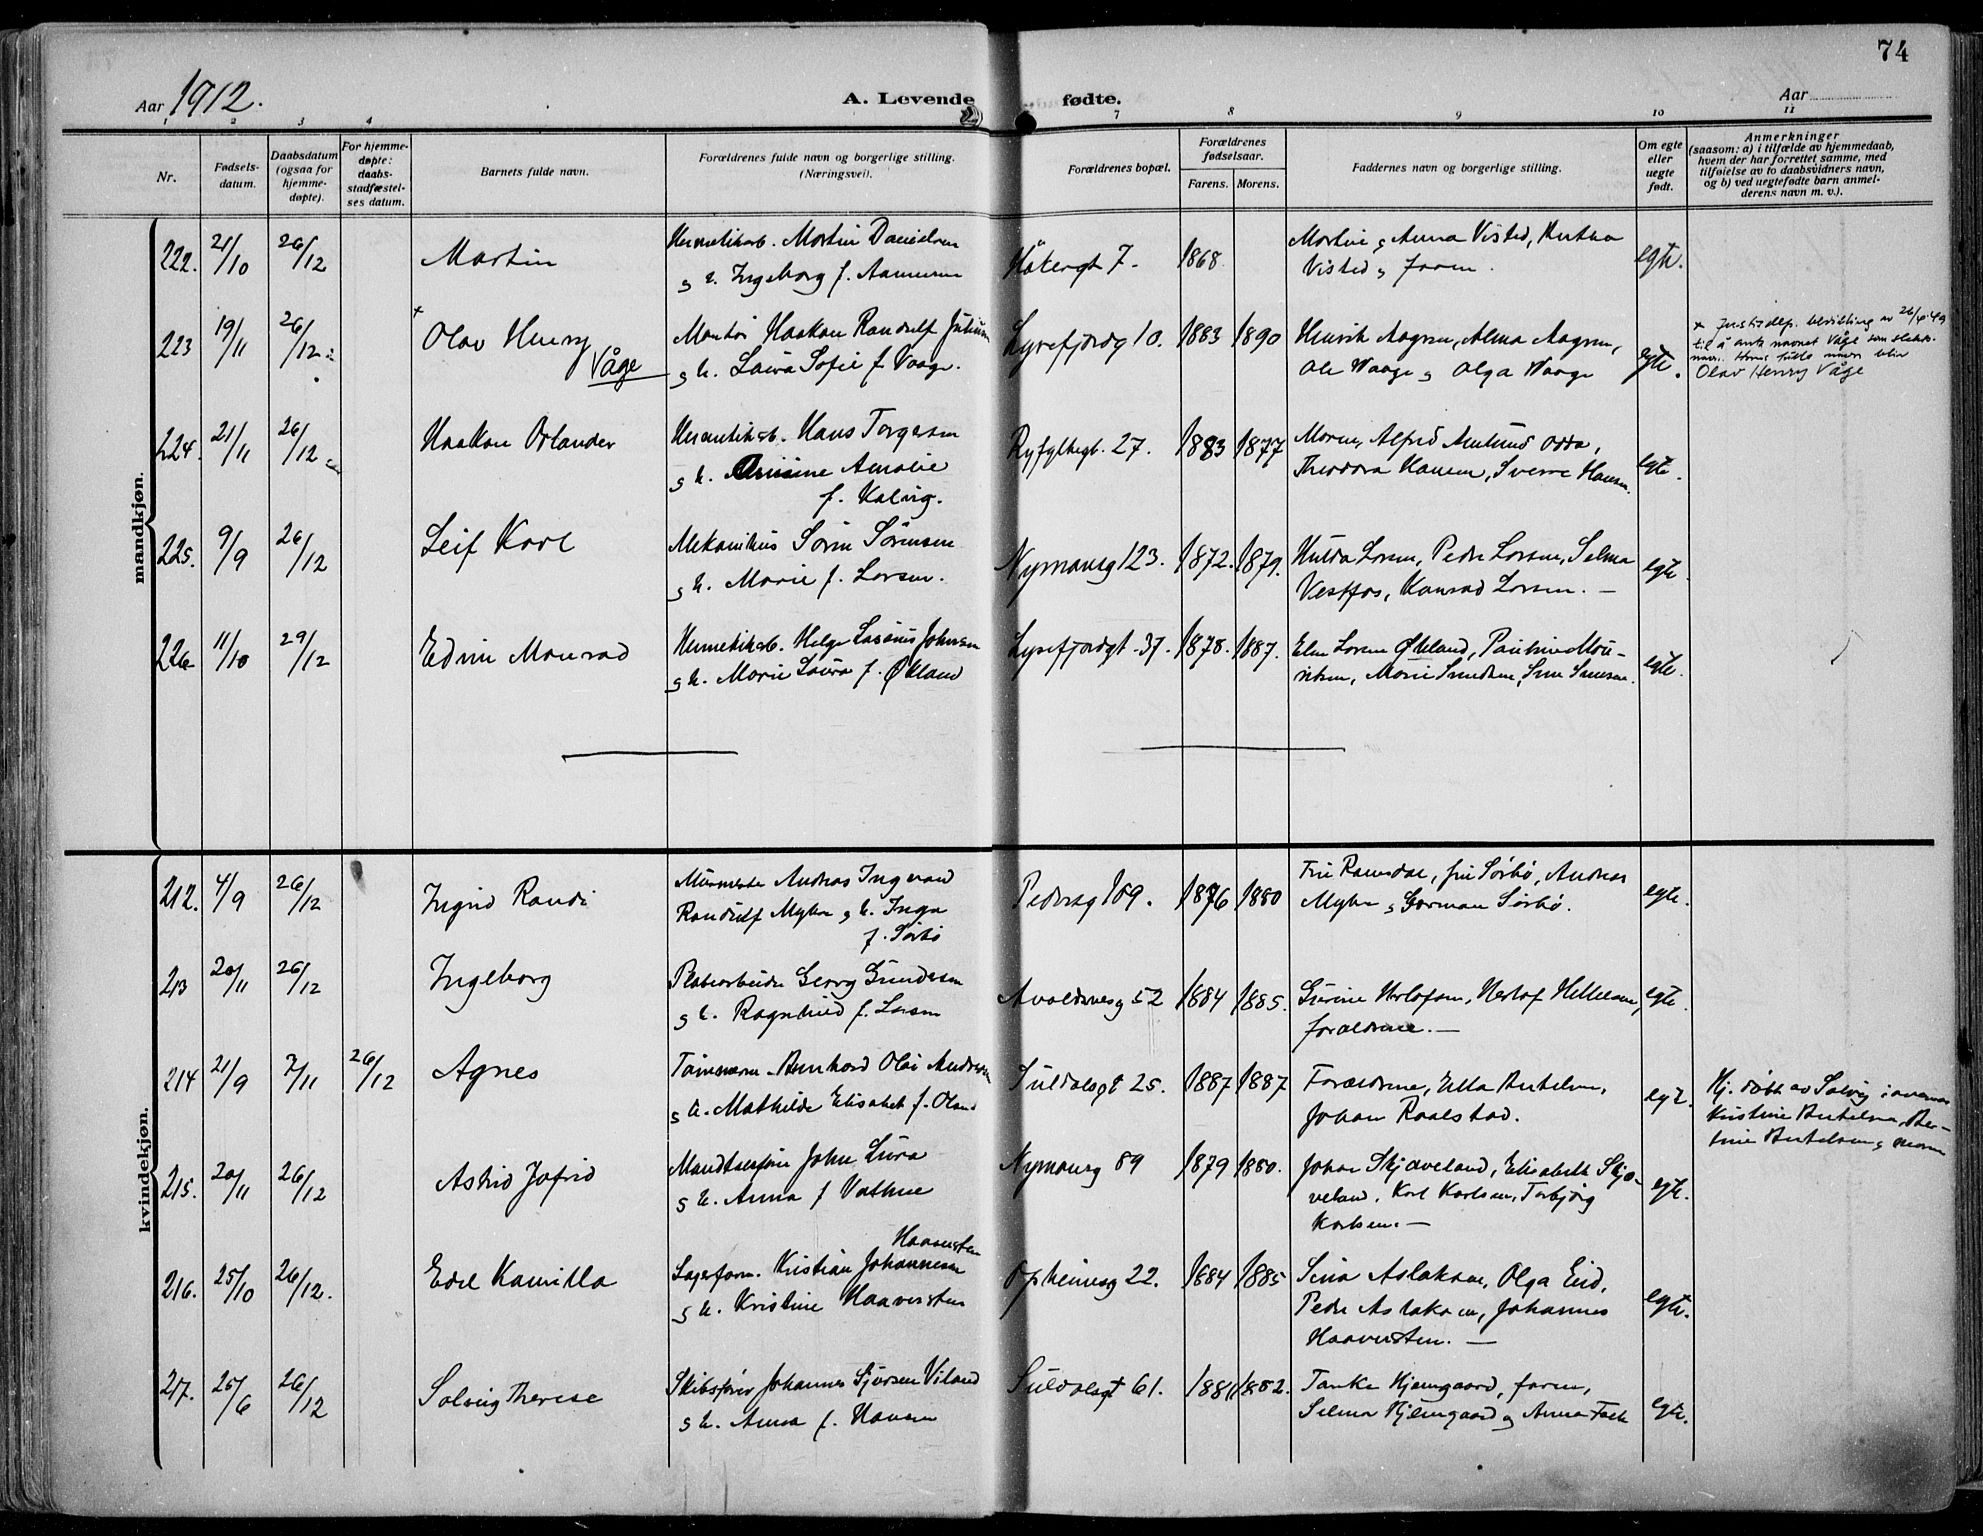 74
Aar 1912.
A. Levende fødte.
Aar
1 2 3 4 7 8 9 10 11
Nr.
Fødsels-
datum.
Daabsdatum
(ogsaa for
hjemme-
døpte).
For hjemme-
døpte:
daabs-
stadfæstel-
ses datum.
Barnets fulde navn.
Forældrenes fulde navn og borgerlige stilling.
(Næringsvei).
Forældrenes bopæl.
Forældrenes
fødselsaar.
Farens. Morens.
Faddernes navn og borgerlige stilling.
Om egte
eller
uegte
født.
Anmerkninger
(saasom: a) i tilfælde av hjemmedaab,
hvem der har forrettet samme, med
tilføielse av to daabsvidners navn,
og b) ved uegtefødte barn anmel-
derens navn m. v.).
mandkjøn.
222. 21/10 26/12 Martin
Martin Danielsen
Ingeborg f.
7. 1868
Martin Anna Visted,
Visted, faren.
egte.
223 19/11 26/12 Olav Henry
Våge
Montør Haakon Randulf
h. Laura Sofie f. Vaage.
Lysefjordg 10. 1883 1890
Henrik Aagren, Alma Aagren,
Ole Waage Olga Waage
egte.
bevilling av 26/4-49
til å anta navnet Våge som slekts-
navn. Hans fulle navn blir
Olav Henry Våge
224. 21/11 26/12 Haakon Orlander
Hermetikarb. Hans Torgersen
h. Amalie
f. Kalvig.
Ryfylkegt. 27. 1883 1877
Moren, Alfred Odda,
Theodora Hansen, Sverre Hansen.
egte.
225. 9/9 26/12 Leif Karl
Mekanikus Sørin Sørensen
h. Marie f. Larsen.
Nymansg 123. 1872. 1879.
Hulda Larsen, Peder Larsen, Selma
Vestfos, Konrad Larsen. —
egte
226 11/10 29/12 Edvin Monrad
Hermetikarb. Helge Johnsen
h. Marie Laura f. Økland
Lysefjordgt. 37. 1878. 1887.
Larsen Økland,
Marie
egte.
kvindekjøn.
212. 4/9 26/12 Ingrid Randi
Murmester Andreas Ingvard
Randulf Myhre h. Inga
f. Sørbø
Pedersg 109. 1876 1880
Fru Ramsdal, fru Sørbø, Andreas
Myhre Sørbø.
egte.
213 20/11 26/12 Ingeborg
Georg Gundersen
h. Ragnhild f. Larsen
Avaldsnesg 52 1884 1885.
Herlof
forældrene. —
egte
214 21/9 7/11 26/12 Agnes
Olai Andersen
h. Mathilde Elisabet f.
Suldalsgt 25. 1887 1887
Forældrene, Ella Bertelsen,
Johan Raalstad.
egte.
Hj. døbt av
Kristine Bertelsen, Ber-
tine Bertelsen, moren
215. 20/11 26/12 Astrid Jofrid
John Lura
h. Anna f Vathne
Nymansg 89 1879 1880.
Johan Skjæveland, Elisabeth Skjæ-
veland, Karl Karlsen, Torbjørg
Karlsen. —
egte.
216. 25/10 26/12. Edel Kamilla
Haaversten
Kristian Johannesen
h. Kristine Haaversten
Opheimsg 22. 1884 1885
Sina Aslaksen, Olga Eid,
Peder Aslaksen, Johannes
Haaversten. —
egte.
217. 25/6 26/12 Solveig Therese
Skibsfører Johannes Sjursen Viland
h. Anna f. Hansen
Suldalsgt 61. 1881 1882.
Tanke Hjemgaard, faren,
Selma Hjemgaard Anna
egte.